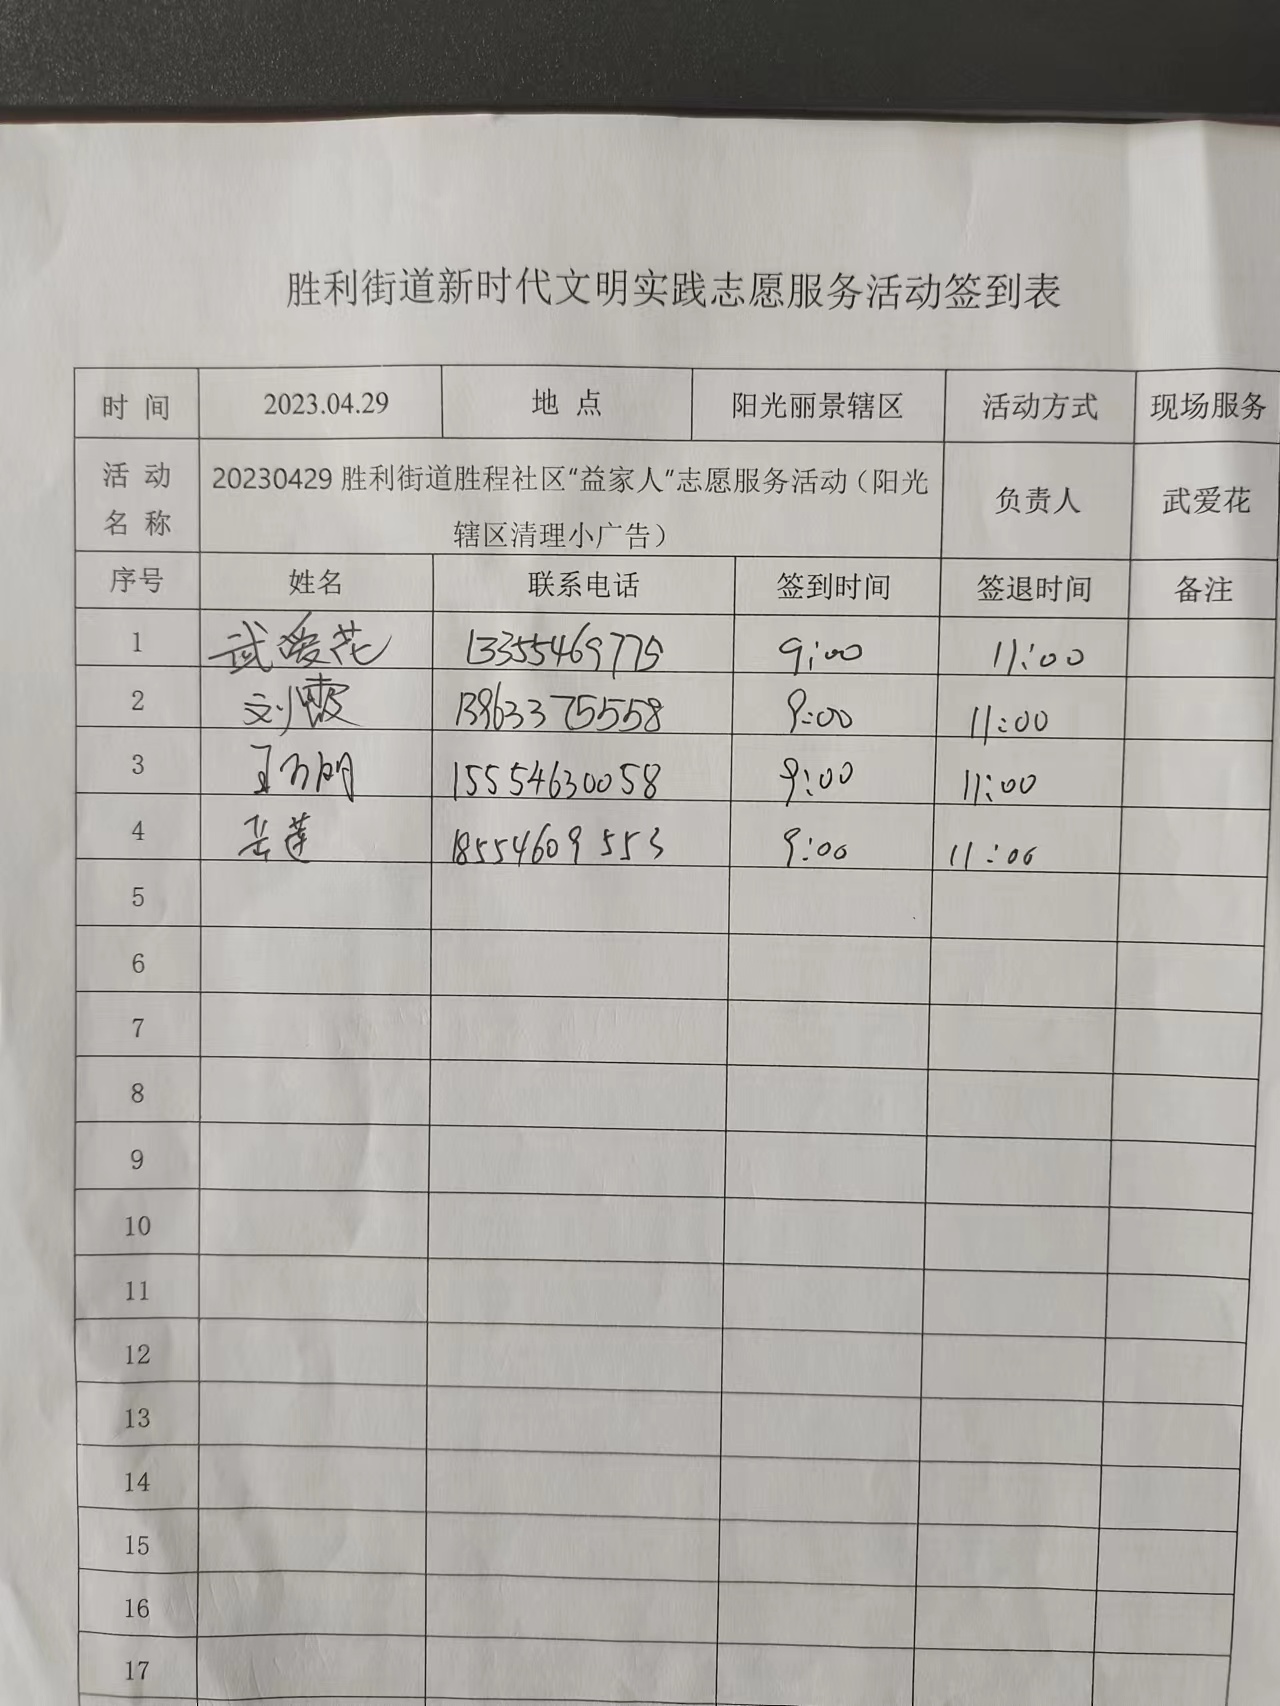 胜利街道新时代文明实践志愿服务活动签到表
时 间 2023.04.29 地 点 阳光丽景辖区 活动方式 现场服务
活 动 名 称 20230429 胜利街道胜程社区“益家人”志愿服务活动（阳光
辖区清理小广告） 负责人 武爱花
序号 姓名 联系电话 签到时间 签退时间 备注
1 武爱花 13355469775 9:00 11:00
2 刘霞 13963375558 9:00 11:00
3 15554630058 9:00 11:00
4 岳莲 18554609553 9:00 11:00
5
6
7
8
9
10
11
12
13
14
15
16
17